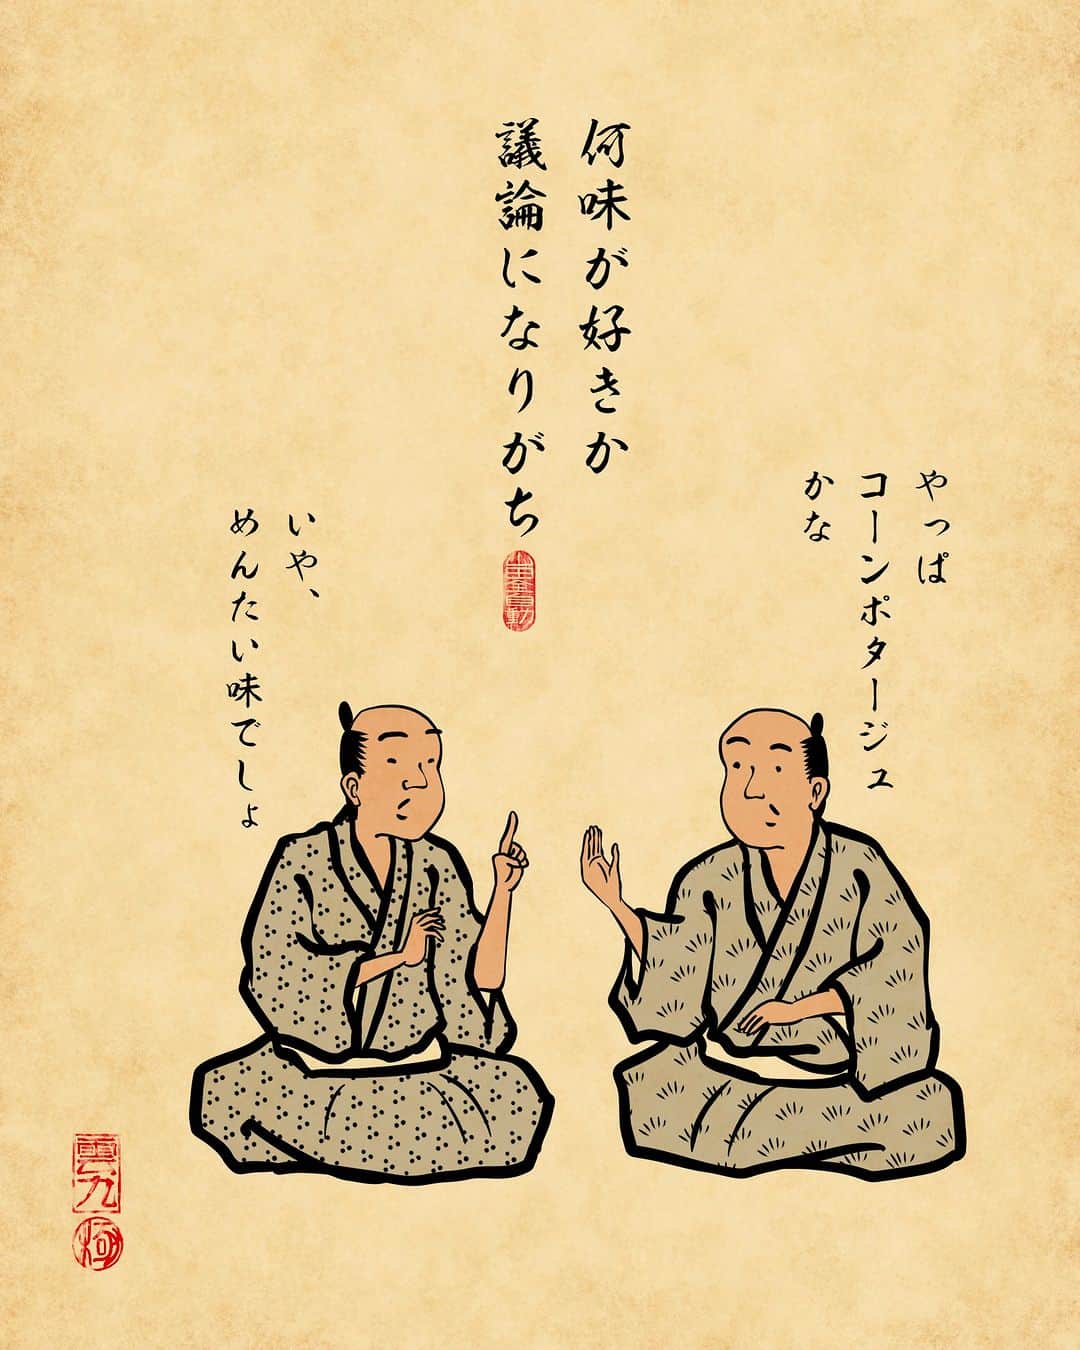 何味が好きか
議論になりがち
やっぱ
コーンポタージュ
かな
いや、
めんたい味でしょ